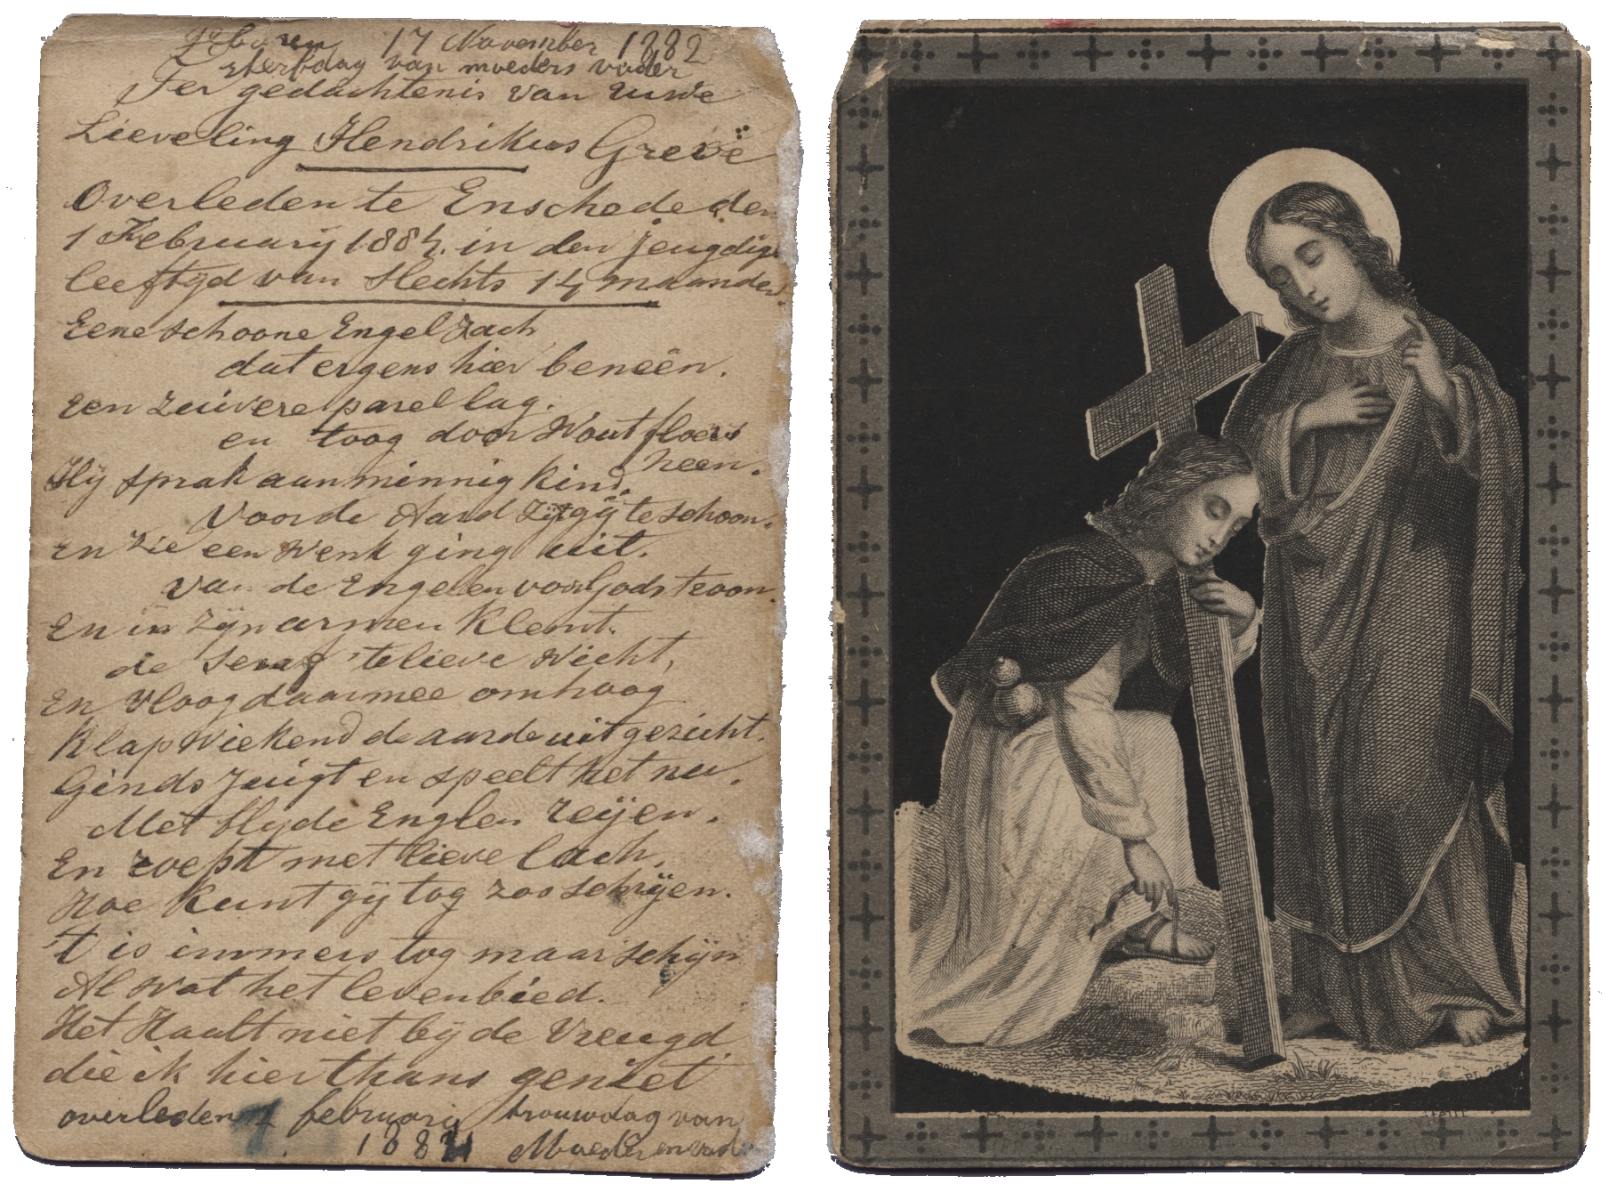 geboren 17 November 1882
sterfdag van moeders vader
Ter gedachtenis van onse
Lieveling Hendrikus Grevë
Overleden te Enschede den
1 Februarij 1884. in den jeugdige
leeftijd van slechts 14 maanden.
Eene schoone Engel zach
dat ergens hier beneën.
een zuivere parel lag.
en toog door Wout floers
heen.
Hij sprak aanminnig kind.
Voor de Aard zijt gij te schoon.
en zie een wenk ging uit.
Van de Engelen voor Gods troon.
En in zijn armen klemt.
de seraf 't lieve Wicht,
En vloog daarmee omhoog
Klapwiekend de aarde uit gezicht.
Ginds juigt en speelt het nu.
Met blijde Englen reijen.
En roept met lieve lach,
Hoe kunt gij tog zoo schrijen.
't is immers tog maar schijn
Al wat het leven bied.
Het Haalt niet bij de Vreugd
die ik hier thans geniet
overleden 1 februari trouwdag van
1884 Moeder en vader